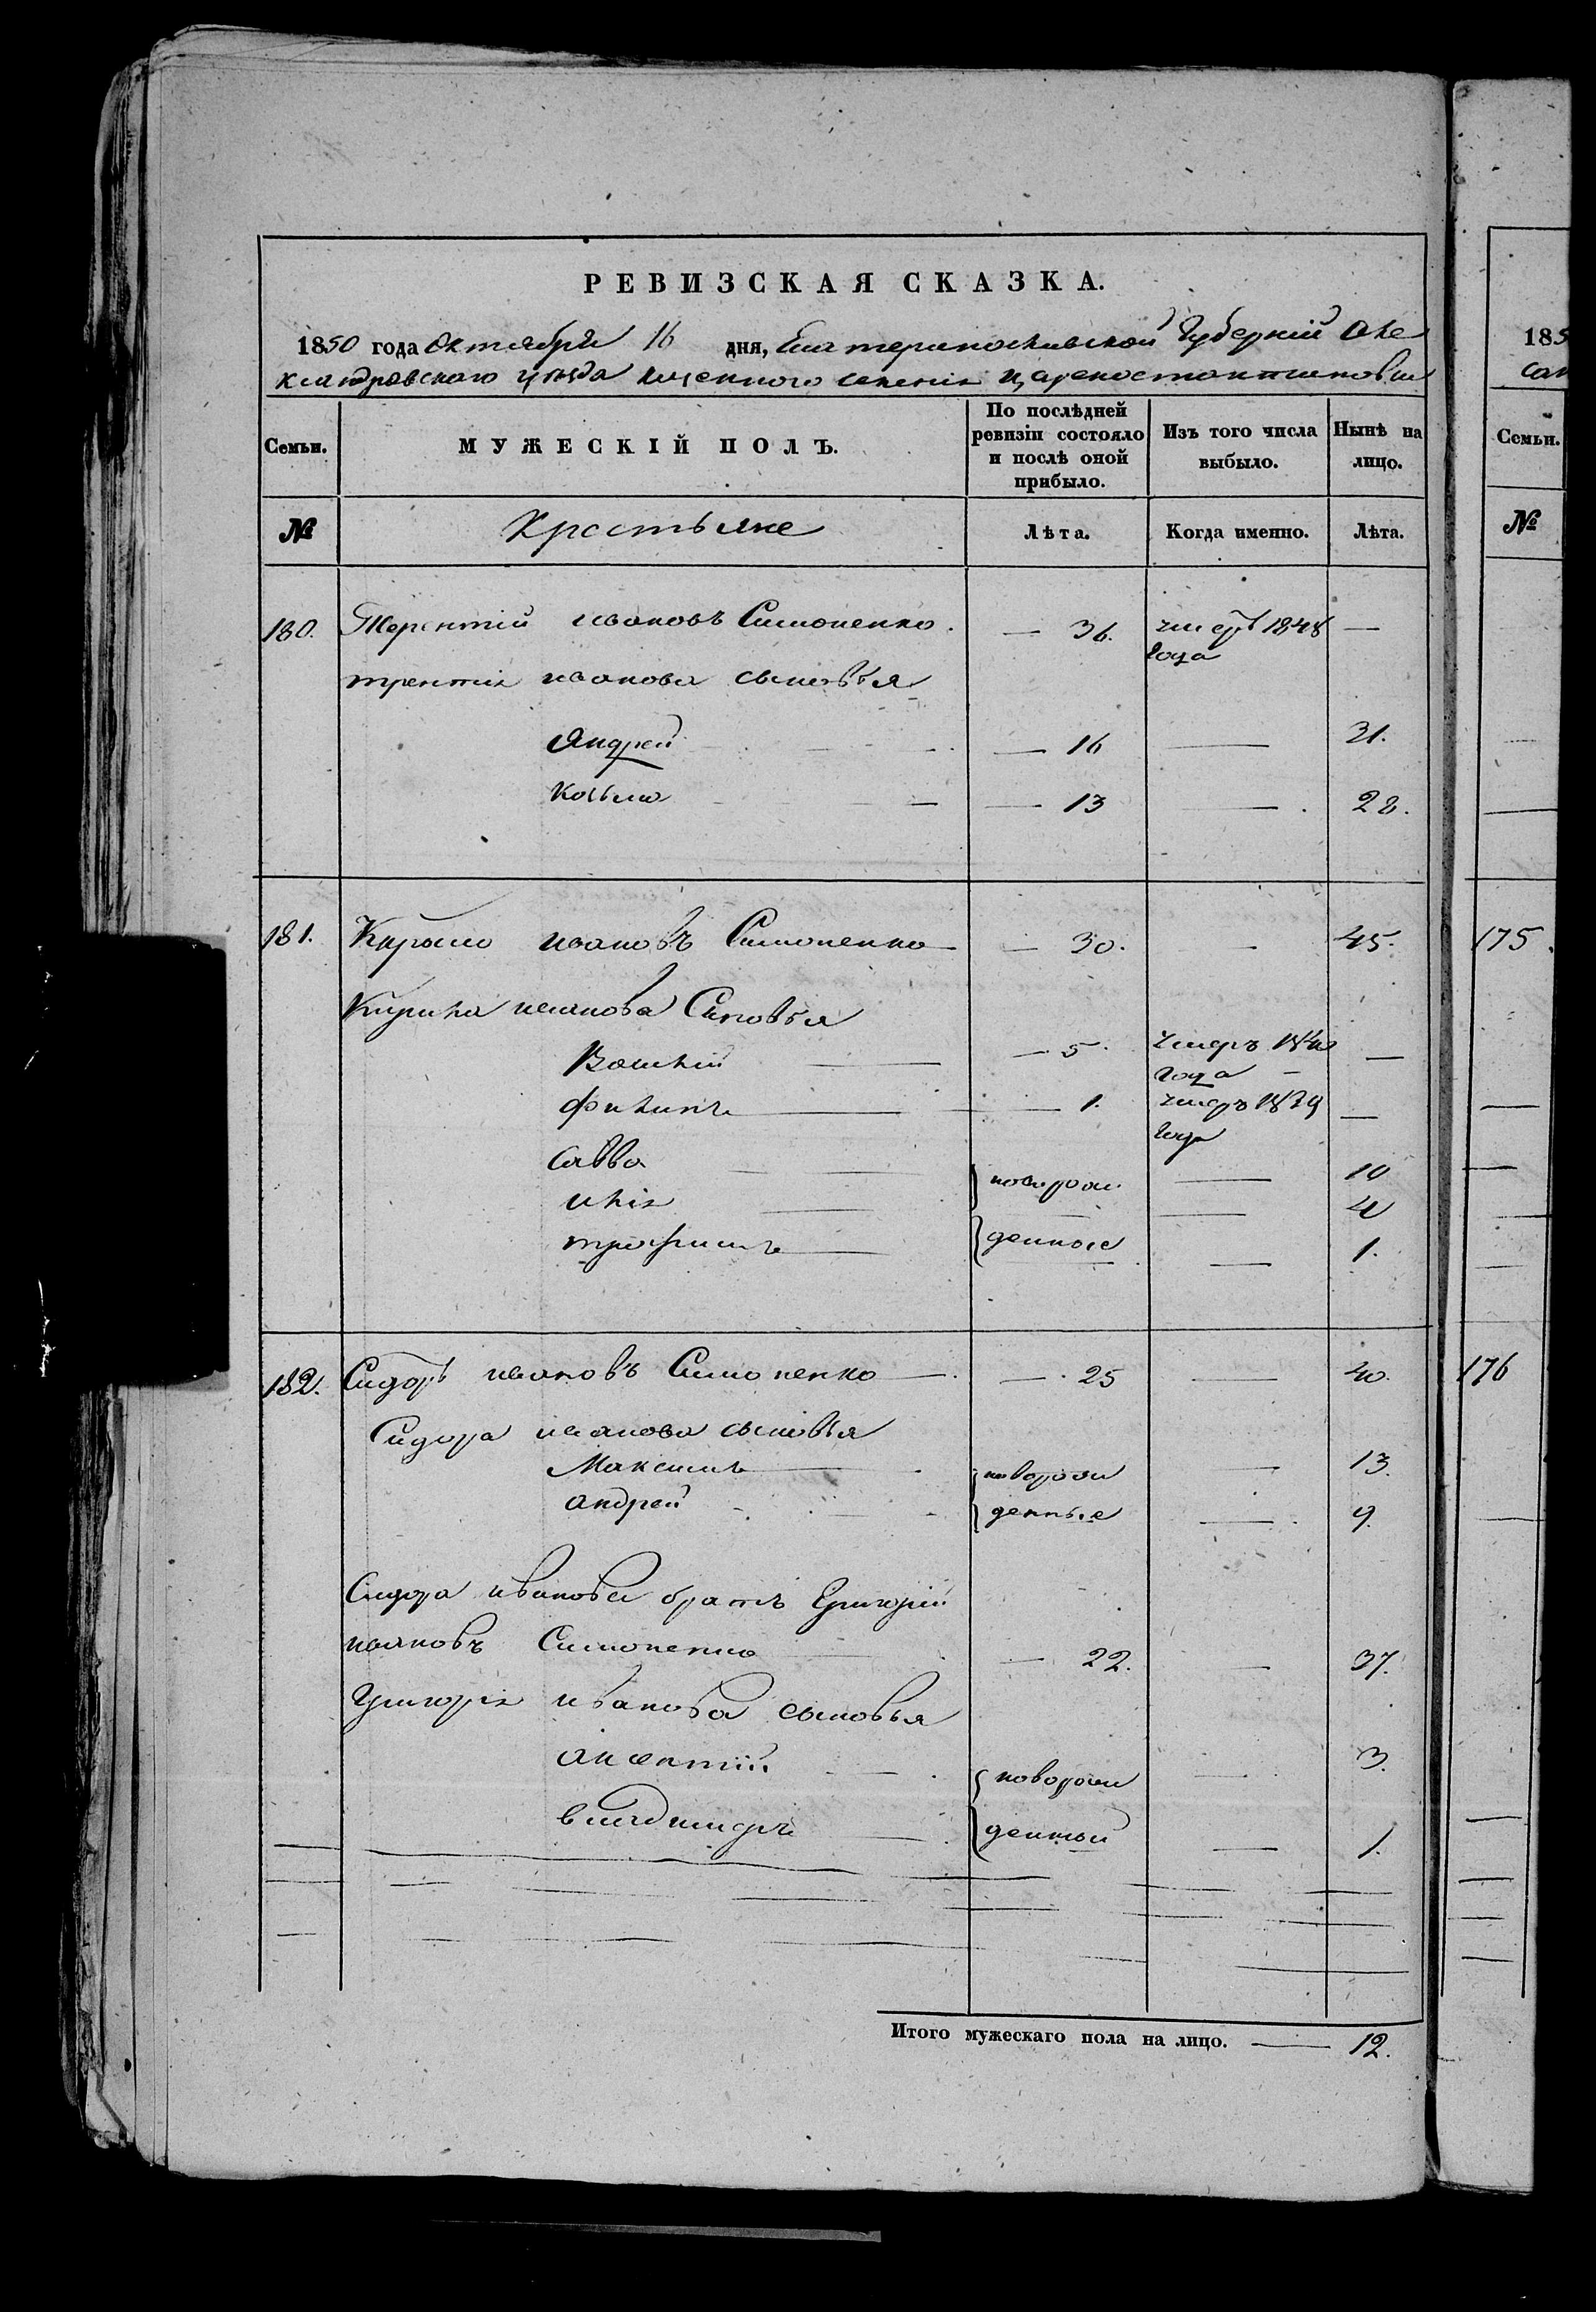 РЕВИЗСКАЯ СКАЗКА.
1850 года Октября 16 дня, Екатеринославской Губерніи Але
ксандровского уѣзда казенного селенія Цареконстантиновки
Семьи. МУЖЕСКІЙ ПОЛЪ. По послѣдней ревизіи состояло и послѣ оной прибыло. Изъ того числа выбыло. Нынѣ на лицо.
№ Крестьяне Лѣта. Когда именно. Лѣта.
180. Терентій ивановъ Симоненко. — 36. умеръ 1848 года —
терентія иванова сыновья
Андрей — 16 — 31.
Козьма — 13 — 28.
181. Кирило ивановъ Симоненко — 30. — 45.
Кирила иванова Сыновья
Василій — 5 умеръ 184 года —
Филипъ — 1. умеръ 1839 года —
Савва — новорож — 10
илія — — 4
трофимъ — денные — 1.
182. Сидоръ ивановъ Симоненко — 25 — 40.
Сидора иванова сыновья
Максимъ — новорож — 13.
андрей — денные — 9.
Сидора иванова братъ Григорій
ивановъ Симоненко — 22. — 37.
Григорія иванова сыновья
аксентій — новорож — 3.
владимиръ — денный — 1.
Итого мужескаго пола на лицо. — 12.
185
Семьи.
№
175.
176